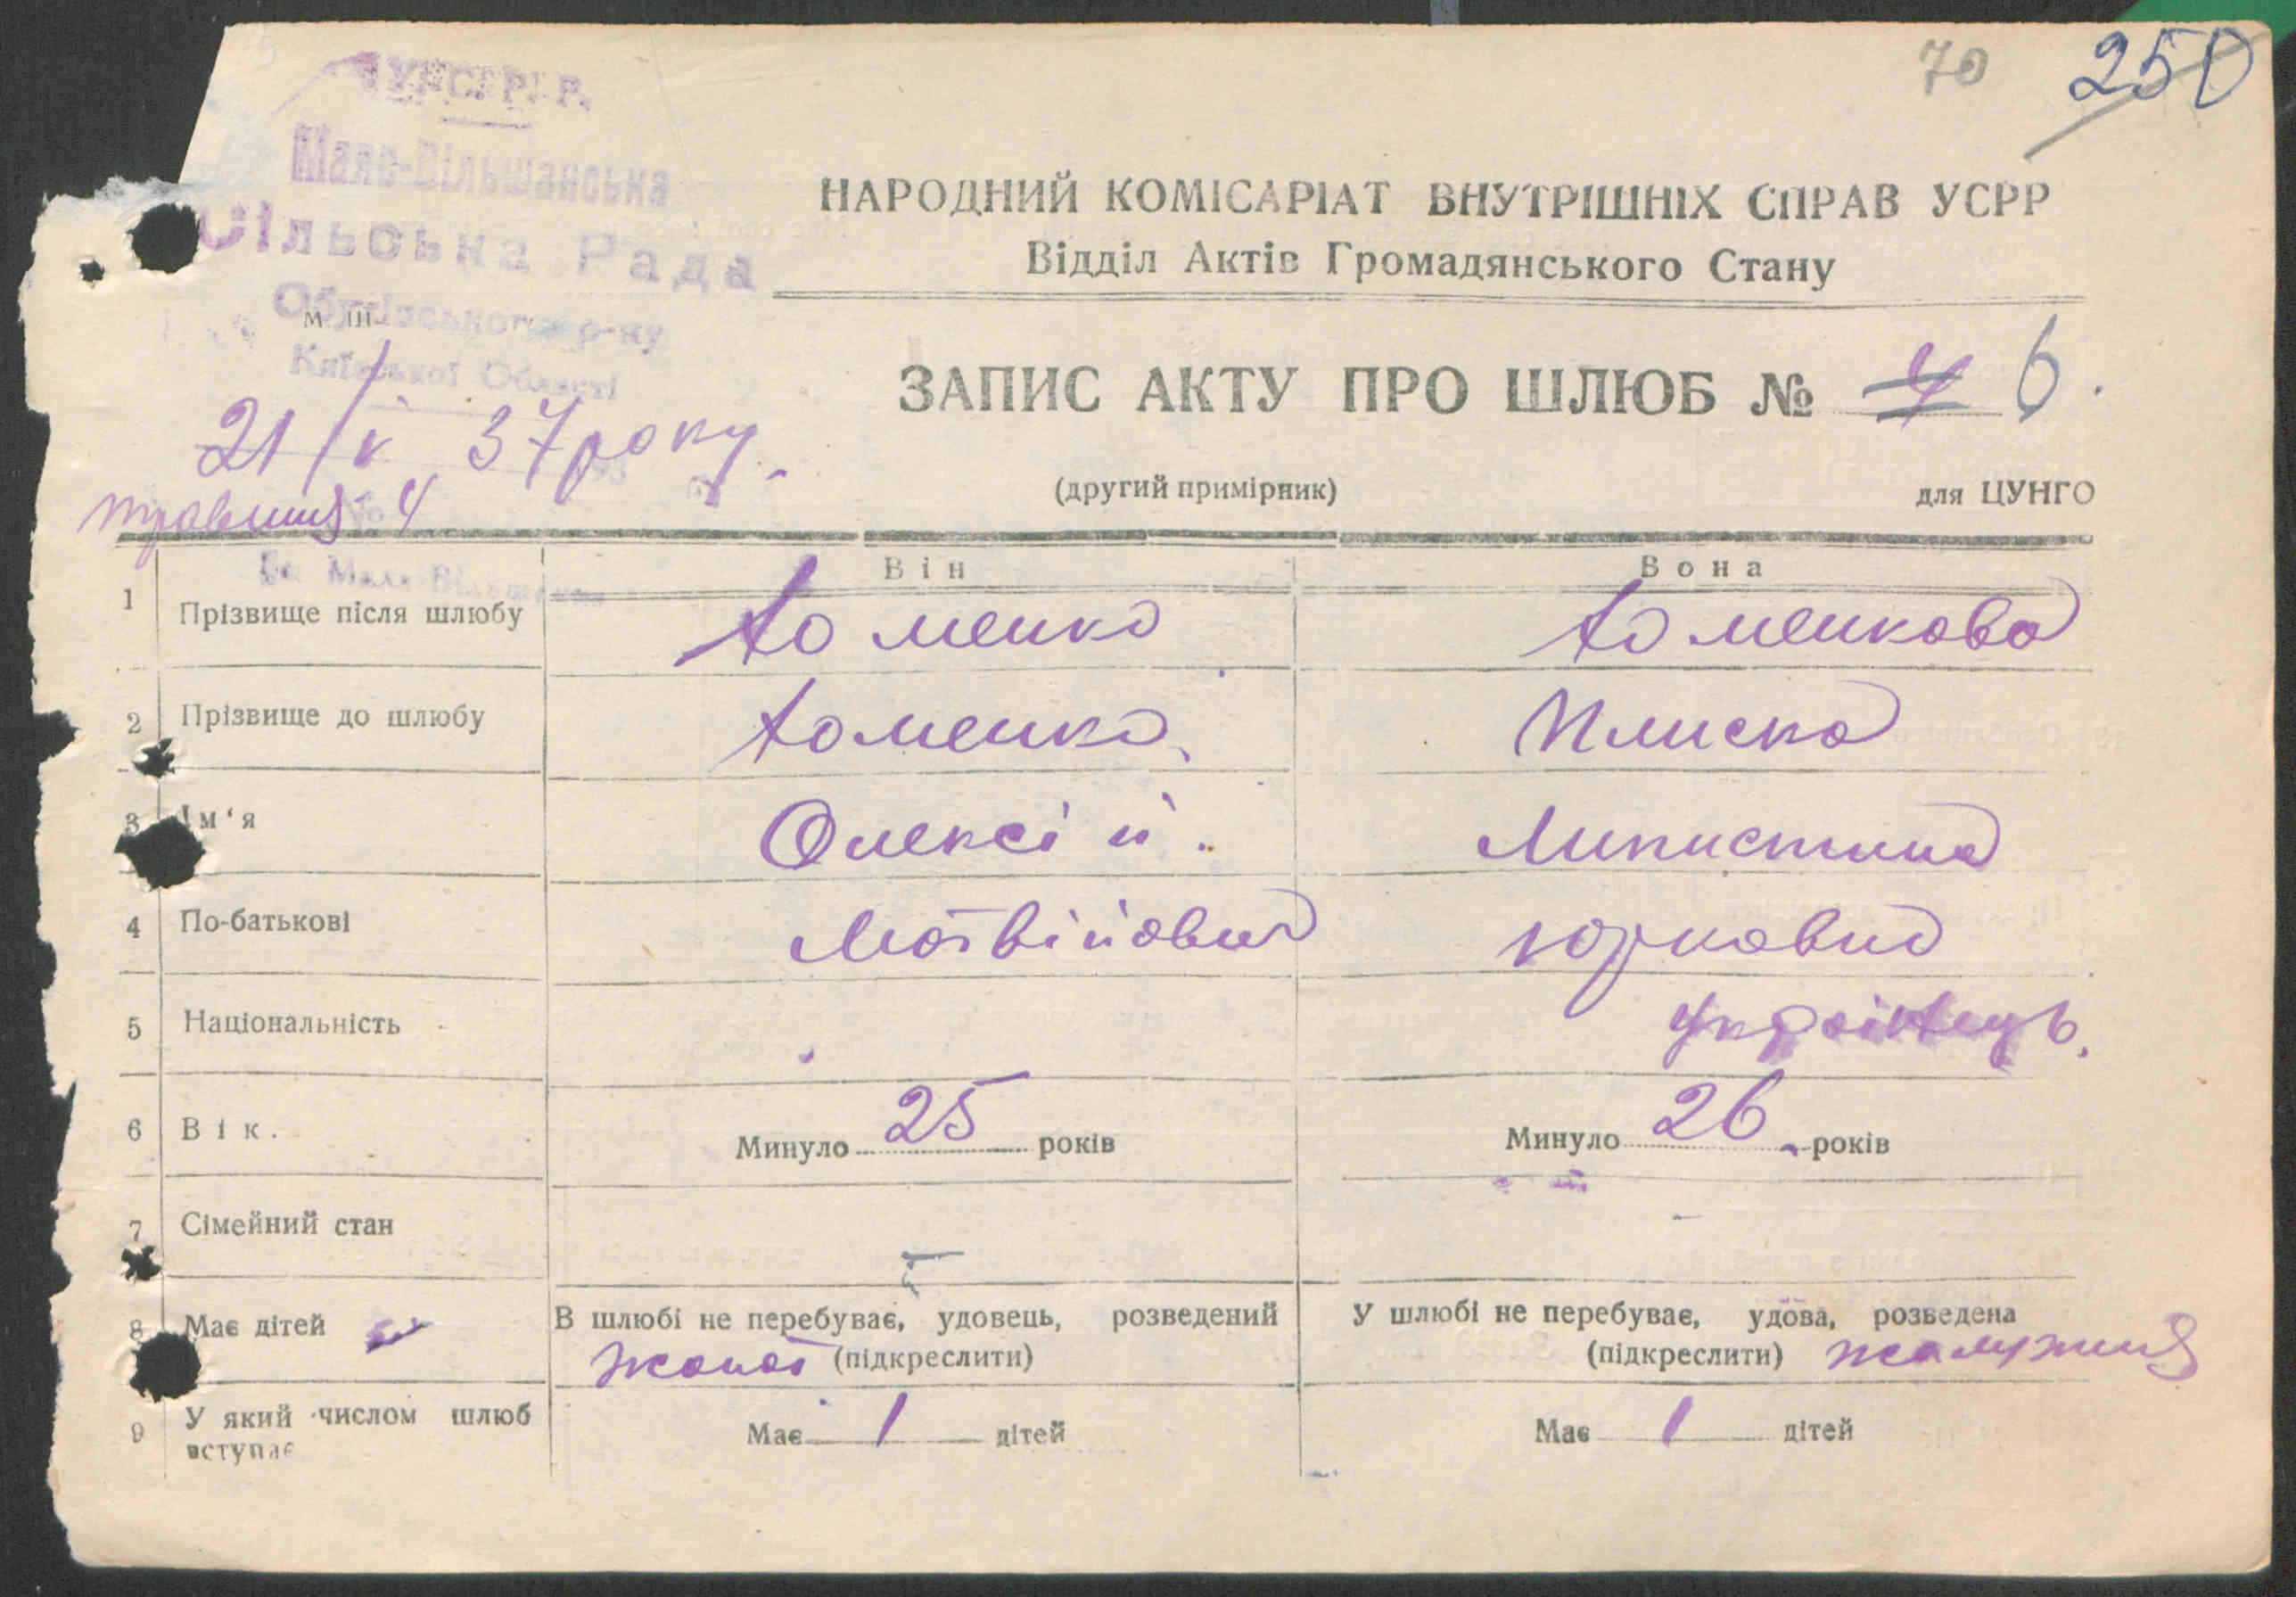 70 250
У.С.Р.Р.
Мало-Вільшанська
Сільська Рада
Обухівського р-ну
Київської Області
м. ш.
НАРОДНИЙ КОМІСАРІАТ ВНУТРІШНІХ СПРАВ УСРР
Відділ Актів Громадянського Стану
ЗАПИС АКТУ ПРО ШЛЮБ № 4 6.
21/V 37 року.
травния 4
(другий примірник) для ЦУНГО
Він Вона
1 Прізвище після шлюбу Хоменко Хоменкова
2 Прізвище до шлюбу Хоменко Плиска
3 Ім'я Олексій
4 По-батькові Мотвійович Юрковна
5 Національність Українець.
6 Вік. Минуло 25 років Минуло 26 років
7 Сімейний стан
8 Має дітей В шлюбі не перебуває, удовець, розведений У шлюбі не перебуває, удова, розведена
(підкреслити) (підкреслити)
9 У який числом шлюб вступає Має 1 дітей Має 1 дітей